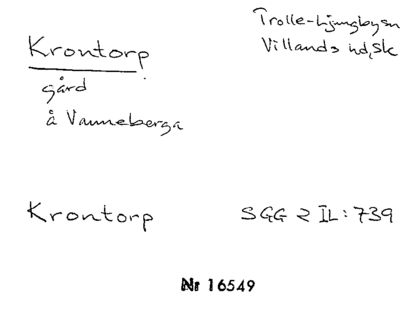 Trolle-Ljungbysn
Villands hd, Sk
Krontorp
gård
å Vanneberga
Krontorp
SGG 2 IL:739
Nr 16549